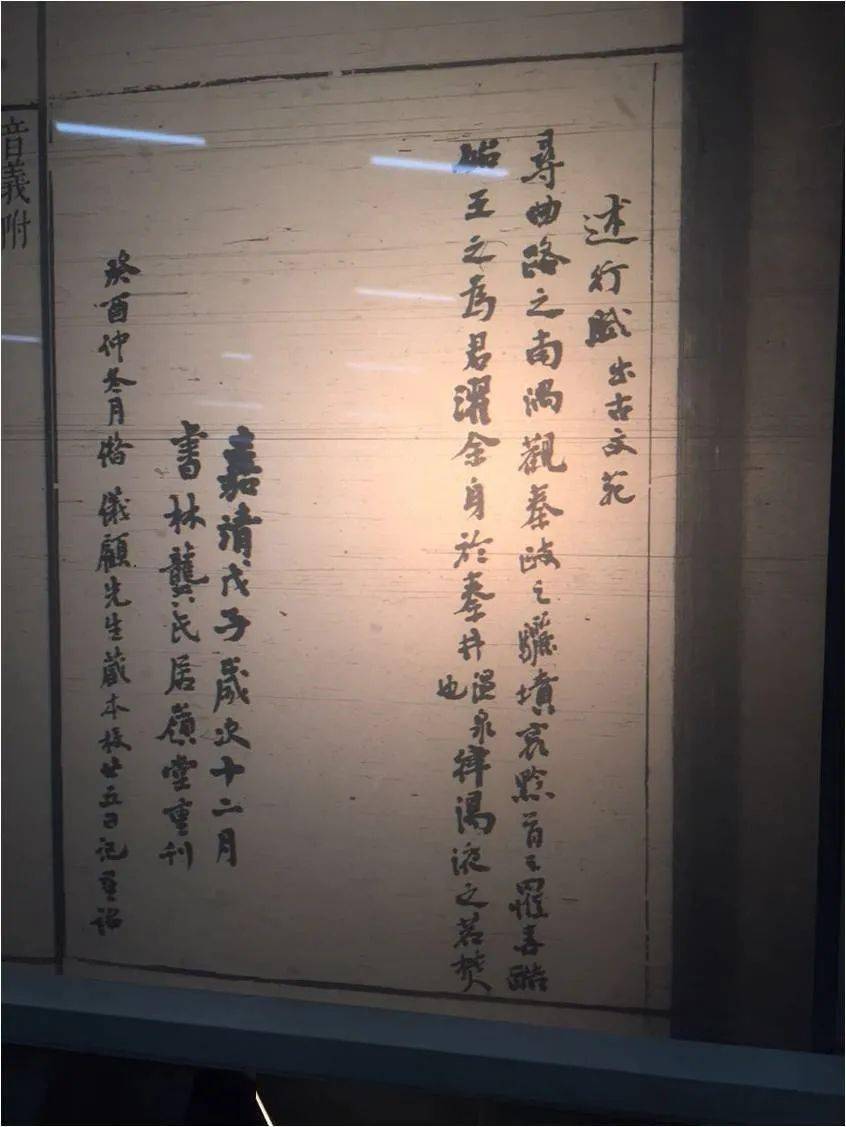 述行賦 出古文苑
尋曲路之南隅觀秦政之驪墳哀黔首之罹毒酷
始王之為君濯余身於秦井溫泉也偉湯液之若焚
嘉清戊子歲次十二月
書林龔氏居嶺堂重刊
癸酉仲冬月借儀顧先生藏本校廿五日記重詒
音義附